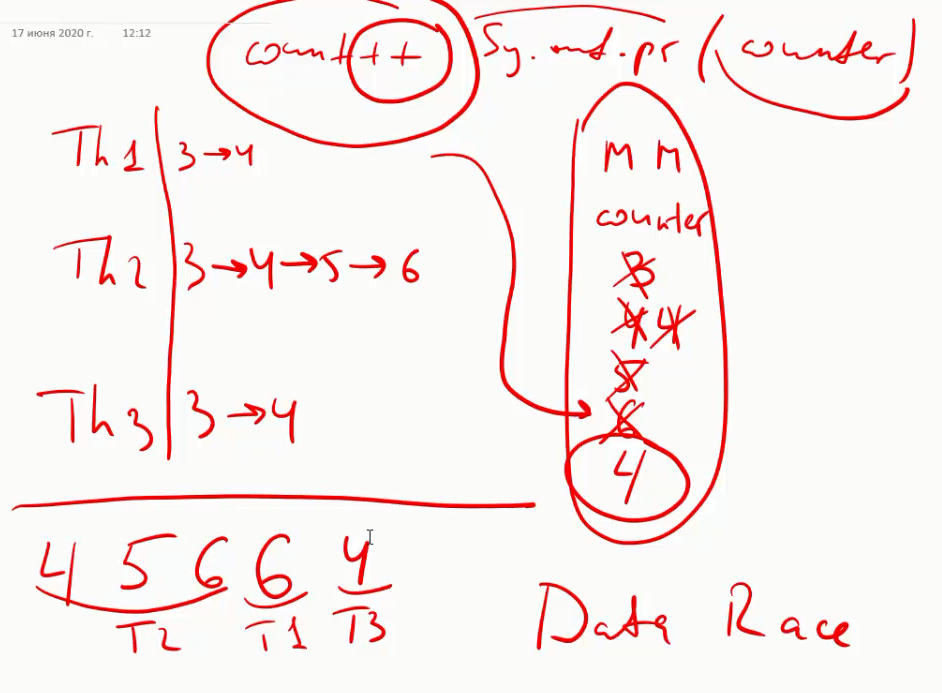 17 июня 2020 г. 12:12
count++ Sy.out.pr (counter)
Th1 3→4
Th2 3→4→5→6
Th3 3→4
M M
counter
3
4 4
5
6
4
4 5 6 6 4
T2 T1 T3
Data Race